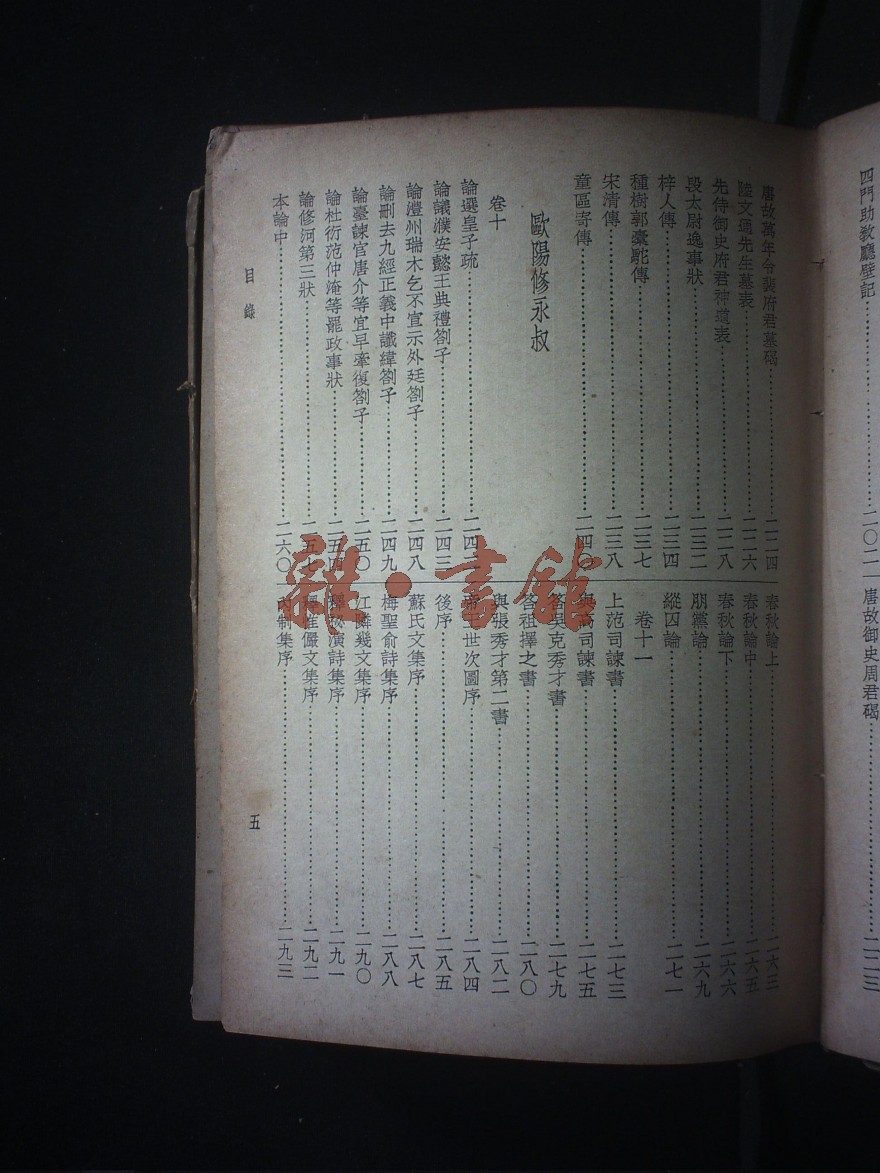 四門助教廳壁記……二〇二
唐故御史周君碣……二二三
唐故萬年令裴府君墓碣……二二四
陸文通先生墓表……二二六
先侍御史府君神道表……二二八
段太尉逸事狀……二三二
梓人傳……二三四
種樹郭橐駝傳……二三七
宋清傳……二三八
童區寄傳……二四〇
歐陽修永叔
卷十
論選皇子疏
論議濮安懿王典禮劄子……二四三
論澧州瑞木乞不宣示外廷劄子……二四八
論刪去九經正義中讖緯劄子……二四九
論臺諫官唐介等宜早牽復劄子……二五〇
論杜衍范仲淹等罷政事狀……二五四
論修河第三狀……二五七
本論中……二六〇
春秋論上……二六三
春秋論中……二六五
春秋論下……二六六
朋黨論……二六九
縱囚論……二七一
卷十一
上范司諫書……二七三
與高司諫書……二七五
答吳充秀才書……二七九
答祖擇之書……二八〇
與張秀才第二書……二八二
帝王世次圖序……二八四
後序……二八五
蘇氏文集序……二八七
梅聖俞詩集序……二八八
江鄰幾文集序……二九〇
釋祕演詩集序……二九一
釋惟儼文集序……二九二
內制集序……二九三
目錄
五
雜·書館